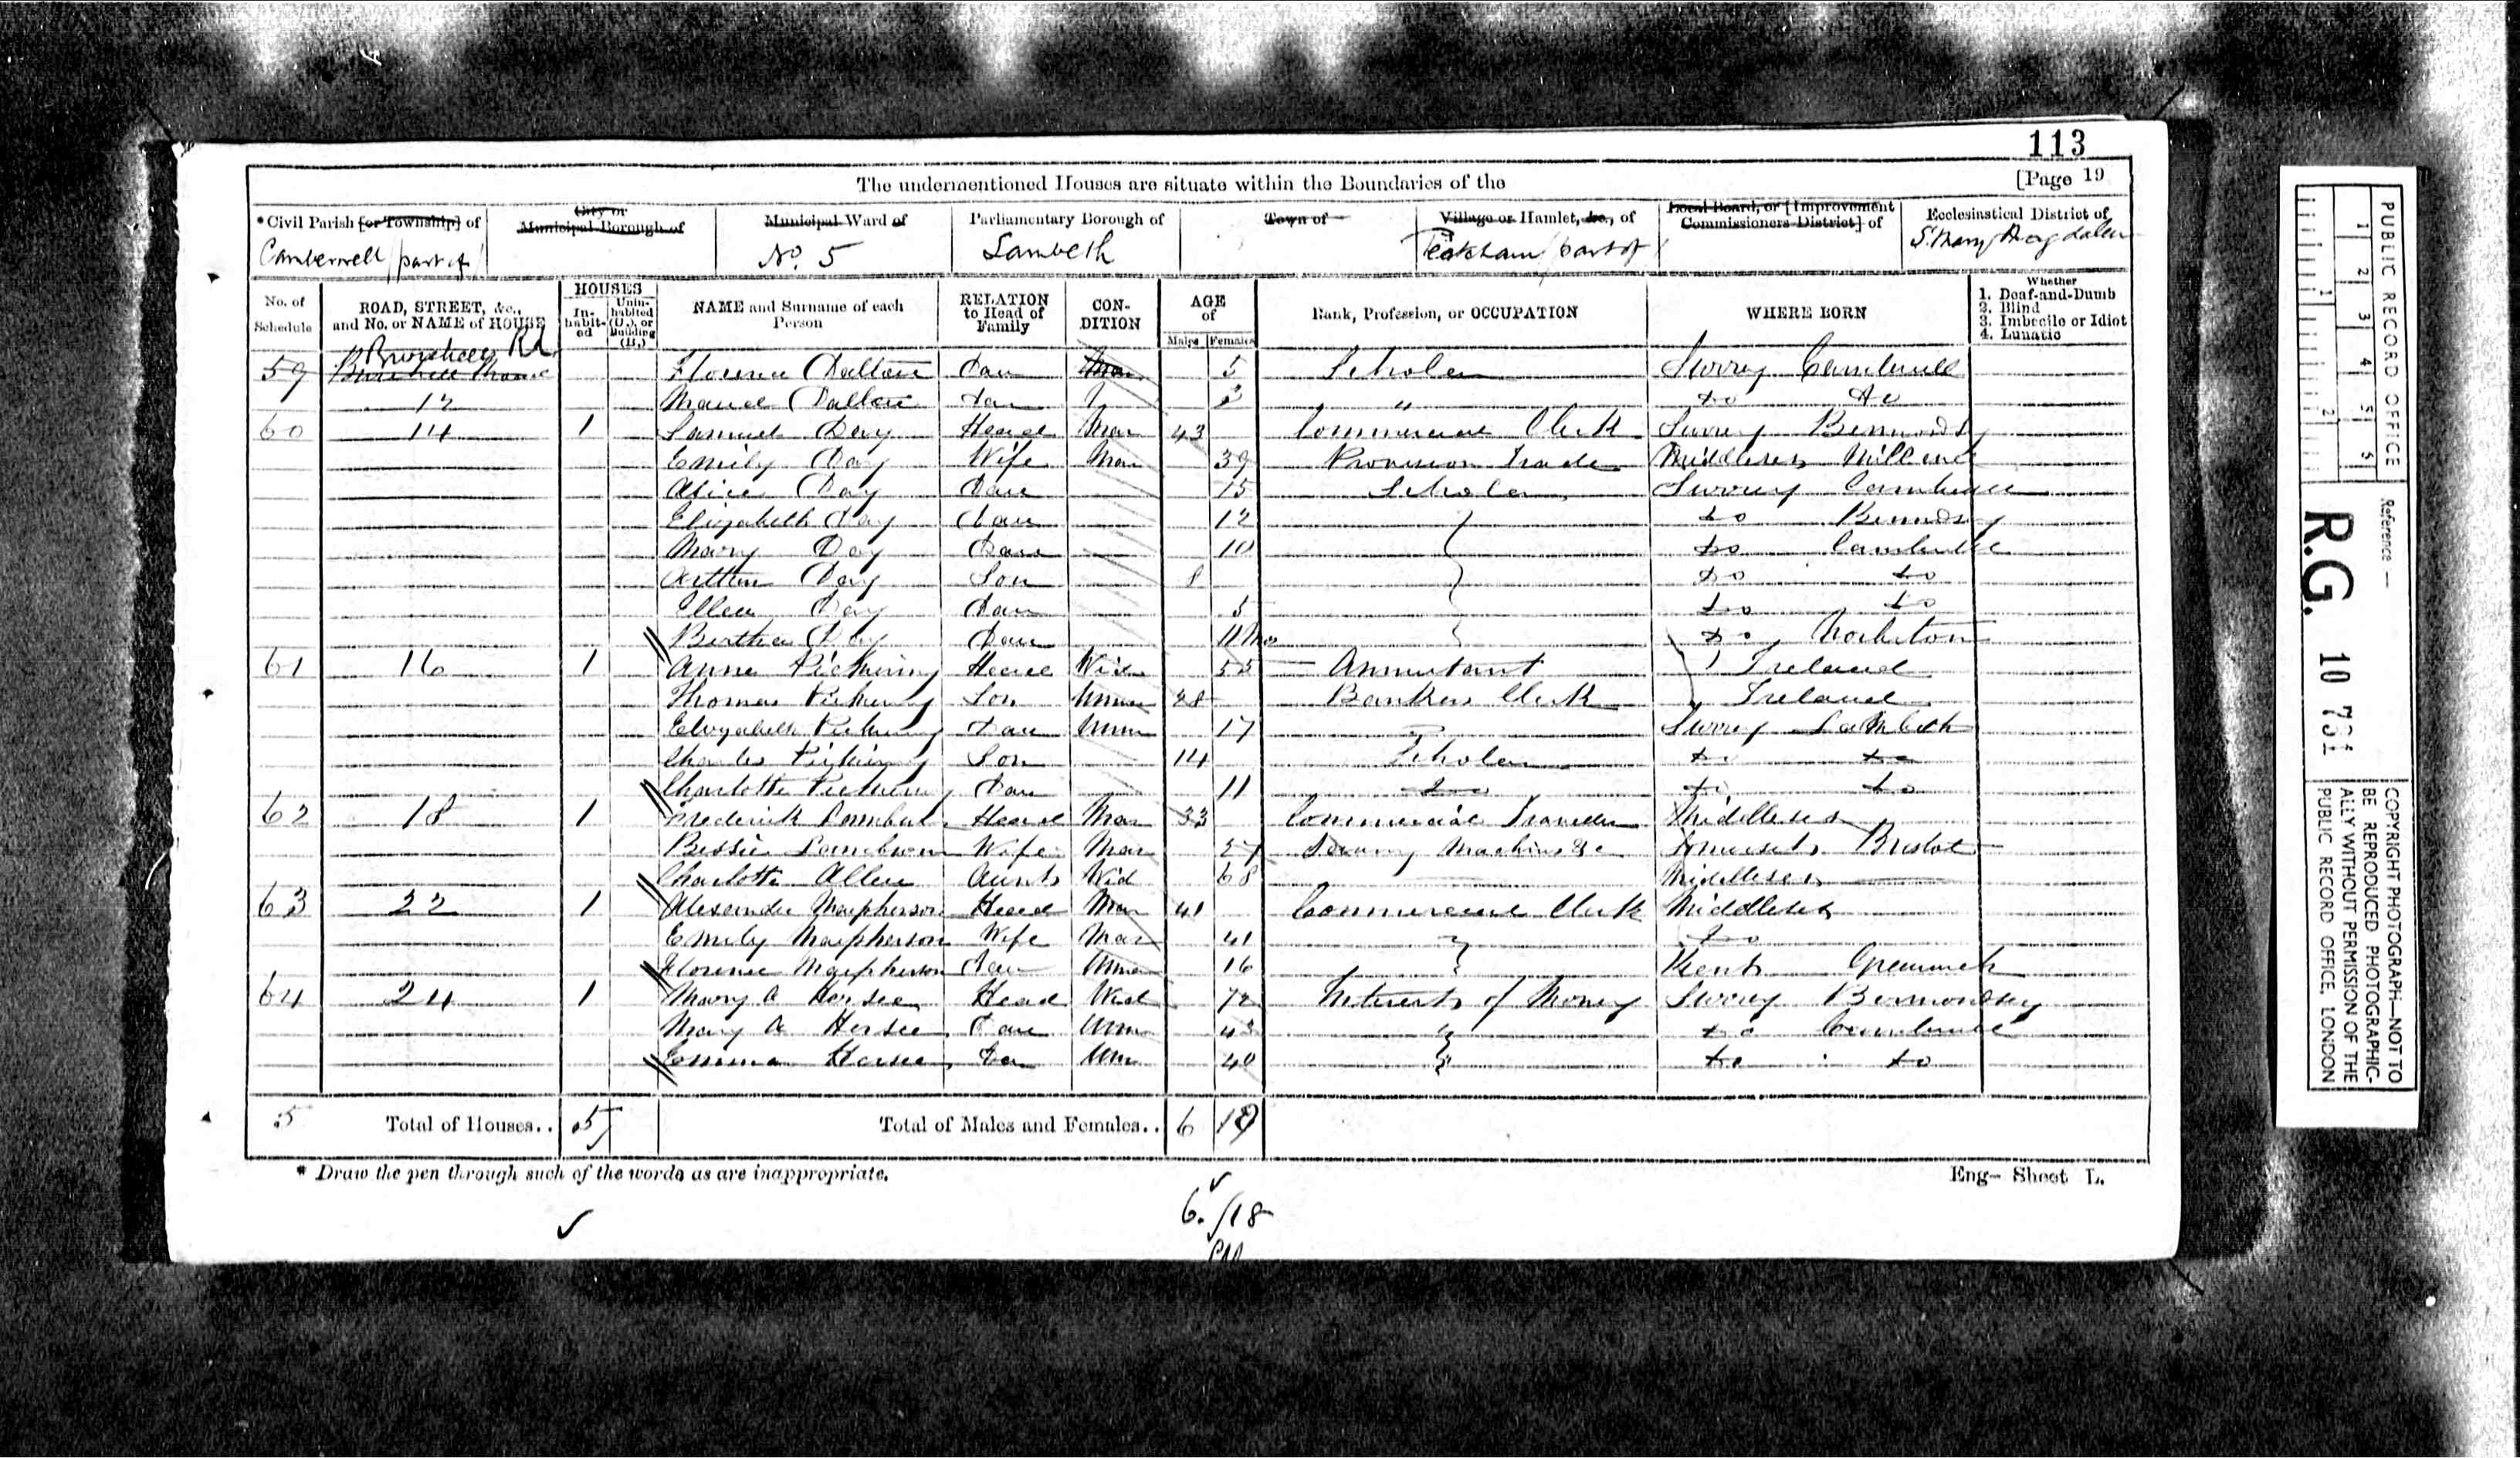 113
The undermentioned Houses are situate within the Boundaries of the
[Page 19
*Civil Parish [or Township] of
City or Municipal Borough of
Municipal Ward of
Parliamentary Borough of
Town of
Village or Hamlet, &c., of
Local Board, or [Improvement Commissioners District] of
Ecclesiastical District of
Camberwell part of
No. 5
Lambeth
Peckham part of
St Mary Magdalen
No. of Schedule
ROAD, STREET, &c., and No. or NAME of HOUSE
HOUSES
Inhabited
Uninhabited (U.), or Building (B.)
NAME and Surname of each Person
RELATION to Head of Family
CONDITION
AGE of
Males
Females
Rank, Profession, or OCCUPATION
WHERE BORN
Whether
1. Deaf-and-Dumb
2. Blind
3. Imbecile or Idiot
4. Lunatic
Rd
59 Florence Dalton Dau 5 Scholar Surrey Camberwell
12 Maud Dalton Dau 3 " do do
60 14 1 Samuel Day Head Mar 43 Commercial Clerk Surrey Bermondsy
Emily Day Wife Mar 39 Provision Trade Middlesex Mill end
Alice Day Dau 15 Scholar Surrey Camberwell
Elizabeth Day Dau 12 do Bermdsy
Mary Day Dau 10 do Camberwell
Arthur Day Son 8 do do
Ellen Day Dau 5 do do
Bertha Day Dau 11 Mos do Norbiton
61 16 1 Anne Pickering Head Wid Annuitant Ireland
Thomas Pickering Son Unm 28 Bankers Clerk Ireland
Elizabeth Pickering Dau Unm 17 Surrey Lambeth
Charles Pickering Son 14 Scholar do do
Charlotte Pickering Dau 11 do do do
62 18 1 Frederick Head Mar 33 Commercial Traveller Middlesex
Bessie Wife Mar 27 Sewing Machines &c Somerset Bristol
Charlotte Allen Aunt Wid 68 Middlesex
63 22 1 Alexander Macpherson Head Mar 41 Commercial Clerk Middlesex
Emily Macpherson Wife Mar 41 do
Florence Macpherson Dau Unm 16 Kent Greenwich
64 24 1 Mary A Hersee Head Wid 72 Interest of Money Surrey Bermondsey
Mary A Hersee Dau Unm 43 " do Camberwell
Emma Hersee Dau Unm 40 " do do
5 Total of Houses.. 5 Total of Males and Females.. 6 18
* Draw the pen through such of the words as are inappropriate.
Eng- Sheet L.
6./18
PUBLIC RECORD OFFICE
1 2 3 4 5 6
1 2
Reference —
R.G. 10
COPYRIGHT PHOTOGRAPH—NOT TO
BE REPRODUCED PHOTOGRAPHIC-
ALLY WITHOUT PERMISSION OF THE
PUBLIC RECORD OFFICE, LONDON